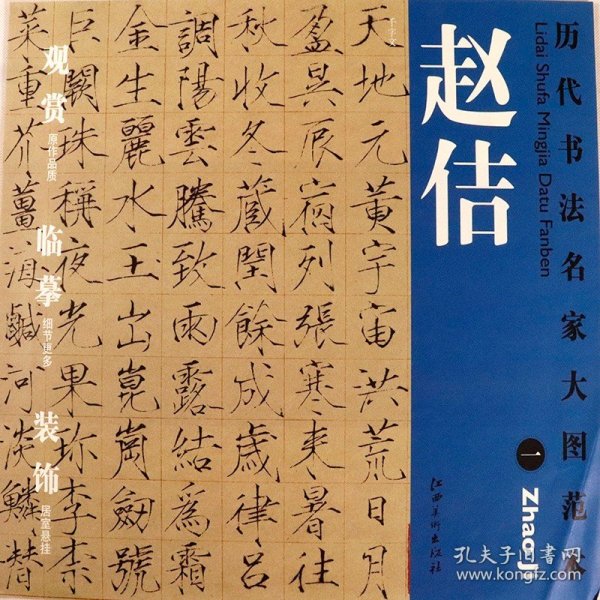 历代书法名家大图范本
Lidai Shufa Mingjia Datu Fanben
赵佶
一
Zhao Ji
江西美术出版社
千字文
天地元黄宇宙洪荒日月
盈昃辰宿列張寒来暑往
秋收冬蔵閏餘成歳律吕
調陽雲騰致雨露結爲霜
金生麗水玉出崑崗劒號
巨闕珠稱夜光果珎李柰
菜重芥薑海鹹河淡鱗
观赏
原作品质
临摹
细节更多
装饰
居室悬挂
孔夫子旧书网
www.kongfz.com